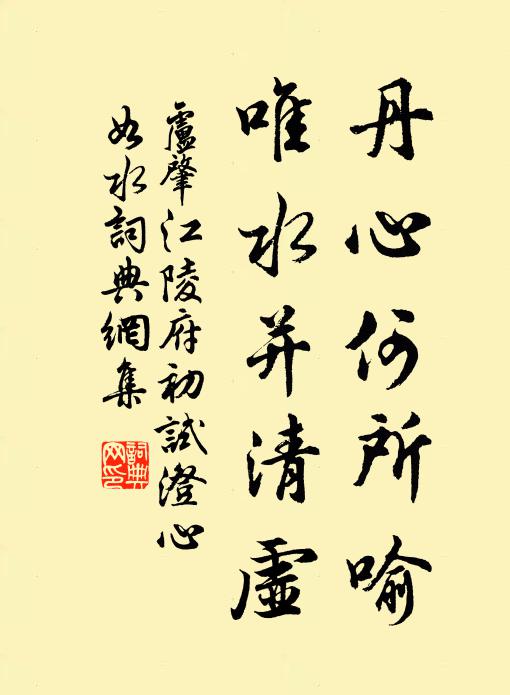 丹心何所喻
唯水并清虛
盧肇江陵府初試澄心
如水詞典網集
詞典網印